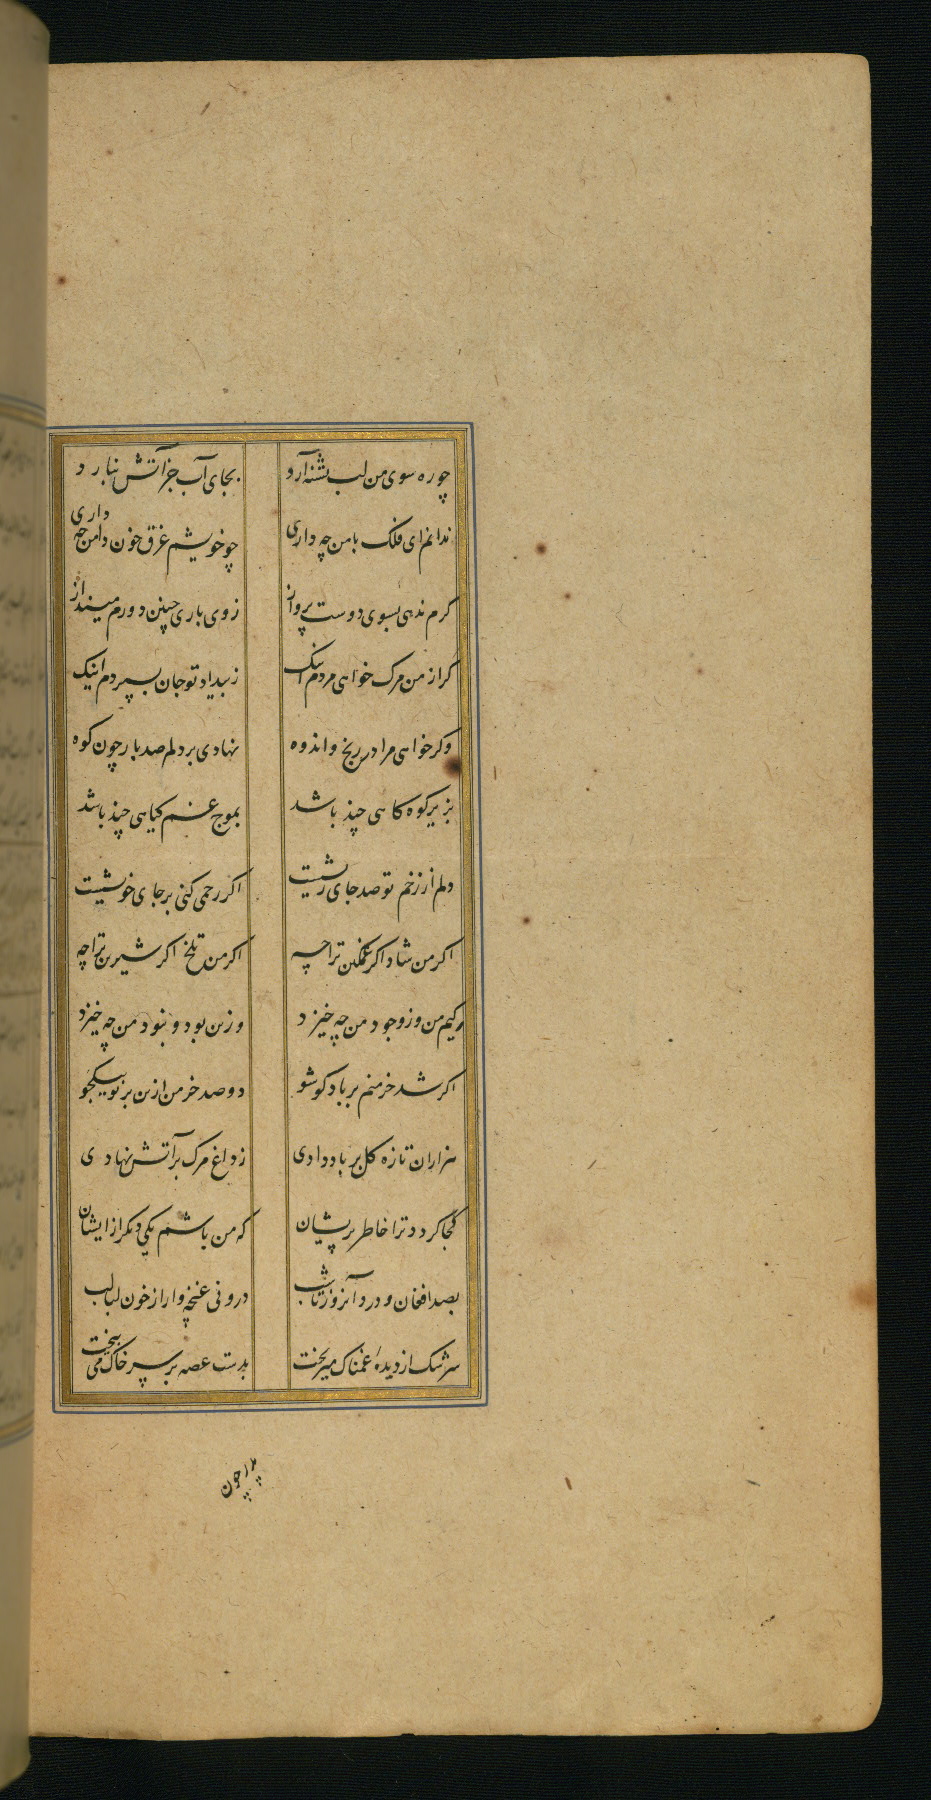 چو ره سوی من لب تشنه آرد بجای آب جز آتش نبارد
ندانم ای فلک با من چه داری چو خویشم غرق خون دامن چه داری
کرم ندهی بسوی دوست پرواز ز وی باری چنین دورم مینداز
کر از من مرک خواهی مردم اینک ز بیداد تو جان بسپردم اینک
وکر خواهی مرا در رنج و اندوه نهادی بر دلم صد بار چون کوه
بزیر کوه کاهی چند باشد بموج غم کیاهی چند باشد
دلم از زخم تو صد جای ریشیت اکر رحمی کنی بر جای خویشیت
اکر من شاد اکر غمکین ترا چه اکر من تلخ اکر شیرین ترا چه
کیم من وز وجود من چه خیزد وزین بود و نبود من چه خیزد
اکر شد خرمنم بر باد کو شو دو صد خرمن ازین بر تو بیکجو
هزاران تازه کل بر باد دادی ز داغ مرک بر آتش نهادی
کجا کردد ترا خاطر پریشان که من باشم یکی دیکر از ایشان
بصد افغان و درد آنروز تا شب درونی غنچه وار از خون لبالب
سرشک از دیدهٔ غمناک میریخت بدست غصه بر سر خاک می بیخت
پدر چون